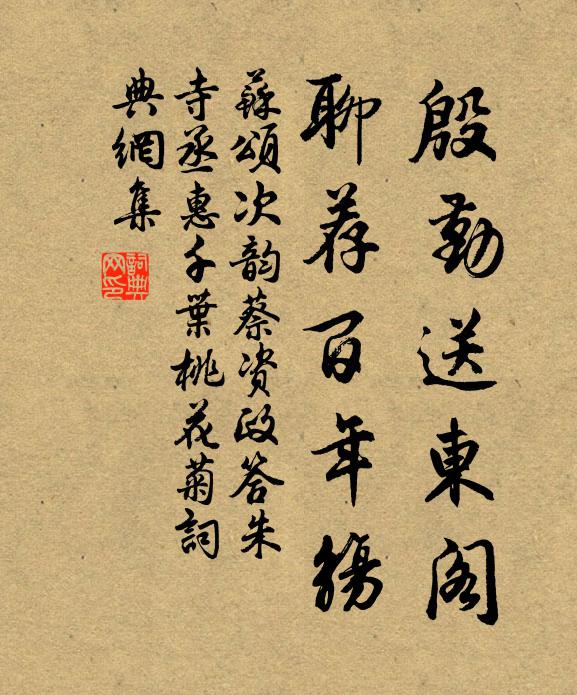 殷勤送東閣
聊荐百年觴
蘇頌次韵蔡资政答朱
寺丞惠千葉桃花菊詞
典網集
詞典網印